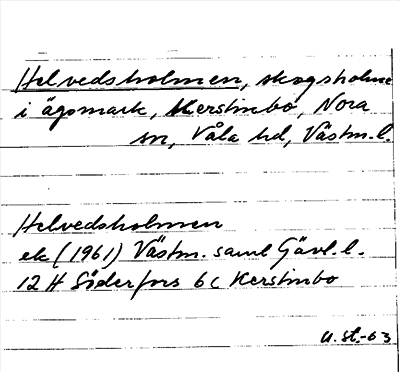 Helvedsholmen, skogsholme
i ägomark, Kerstinbo, Nora
sn, Våla hd, Västm.l.
Helvedsholmen
ek (1961) Västm. samt Gävl.l.
12 H Söderfors 6 c Kerstinbo
U.St.-63